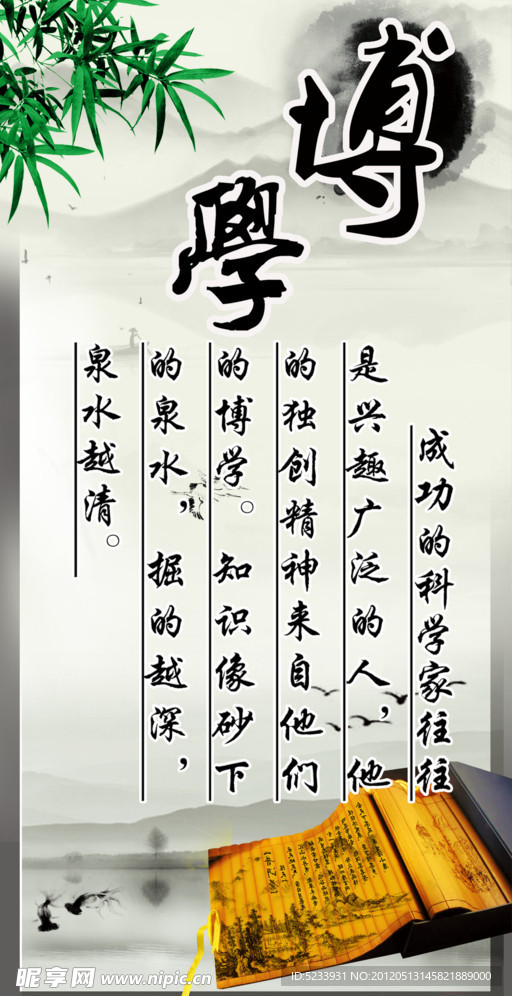 博學
成功的科学家往往
是兴趣广泛的人，他
的独创精神来自他们
的博学。知识像砂下
的泉水，掘的越深，
泉水越清。
昵享网 www.nipic.cn
ID:5233931 NO:20120513145821889000